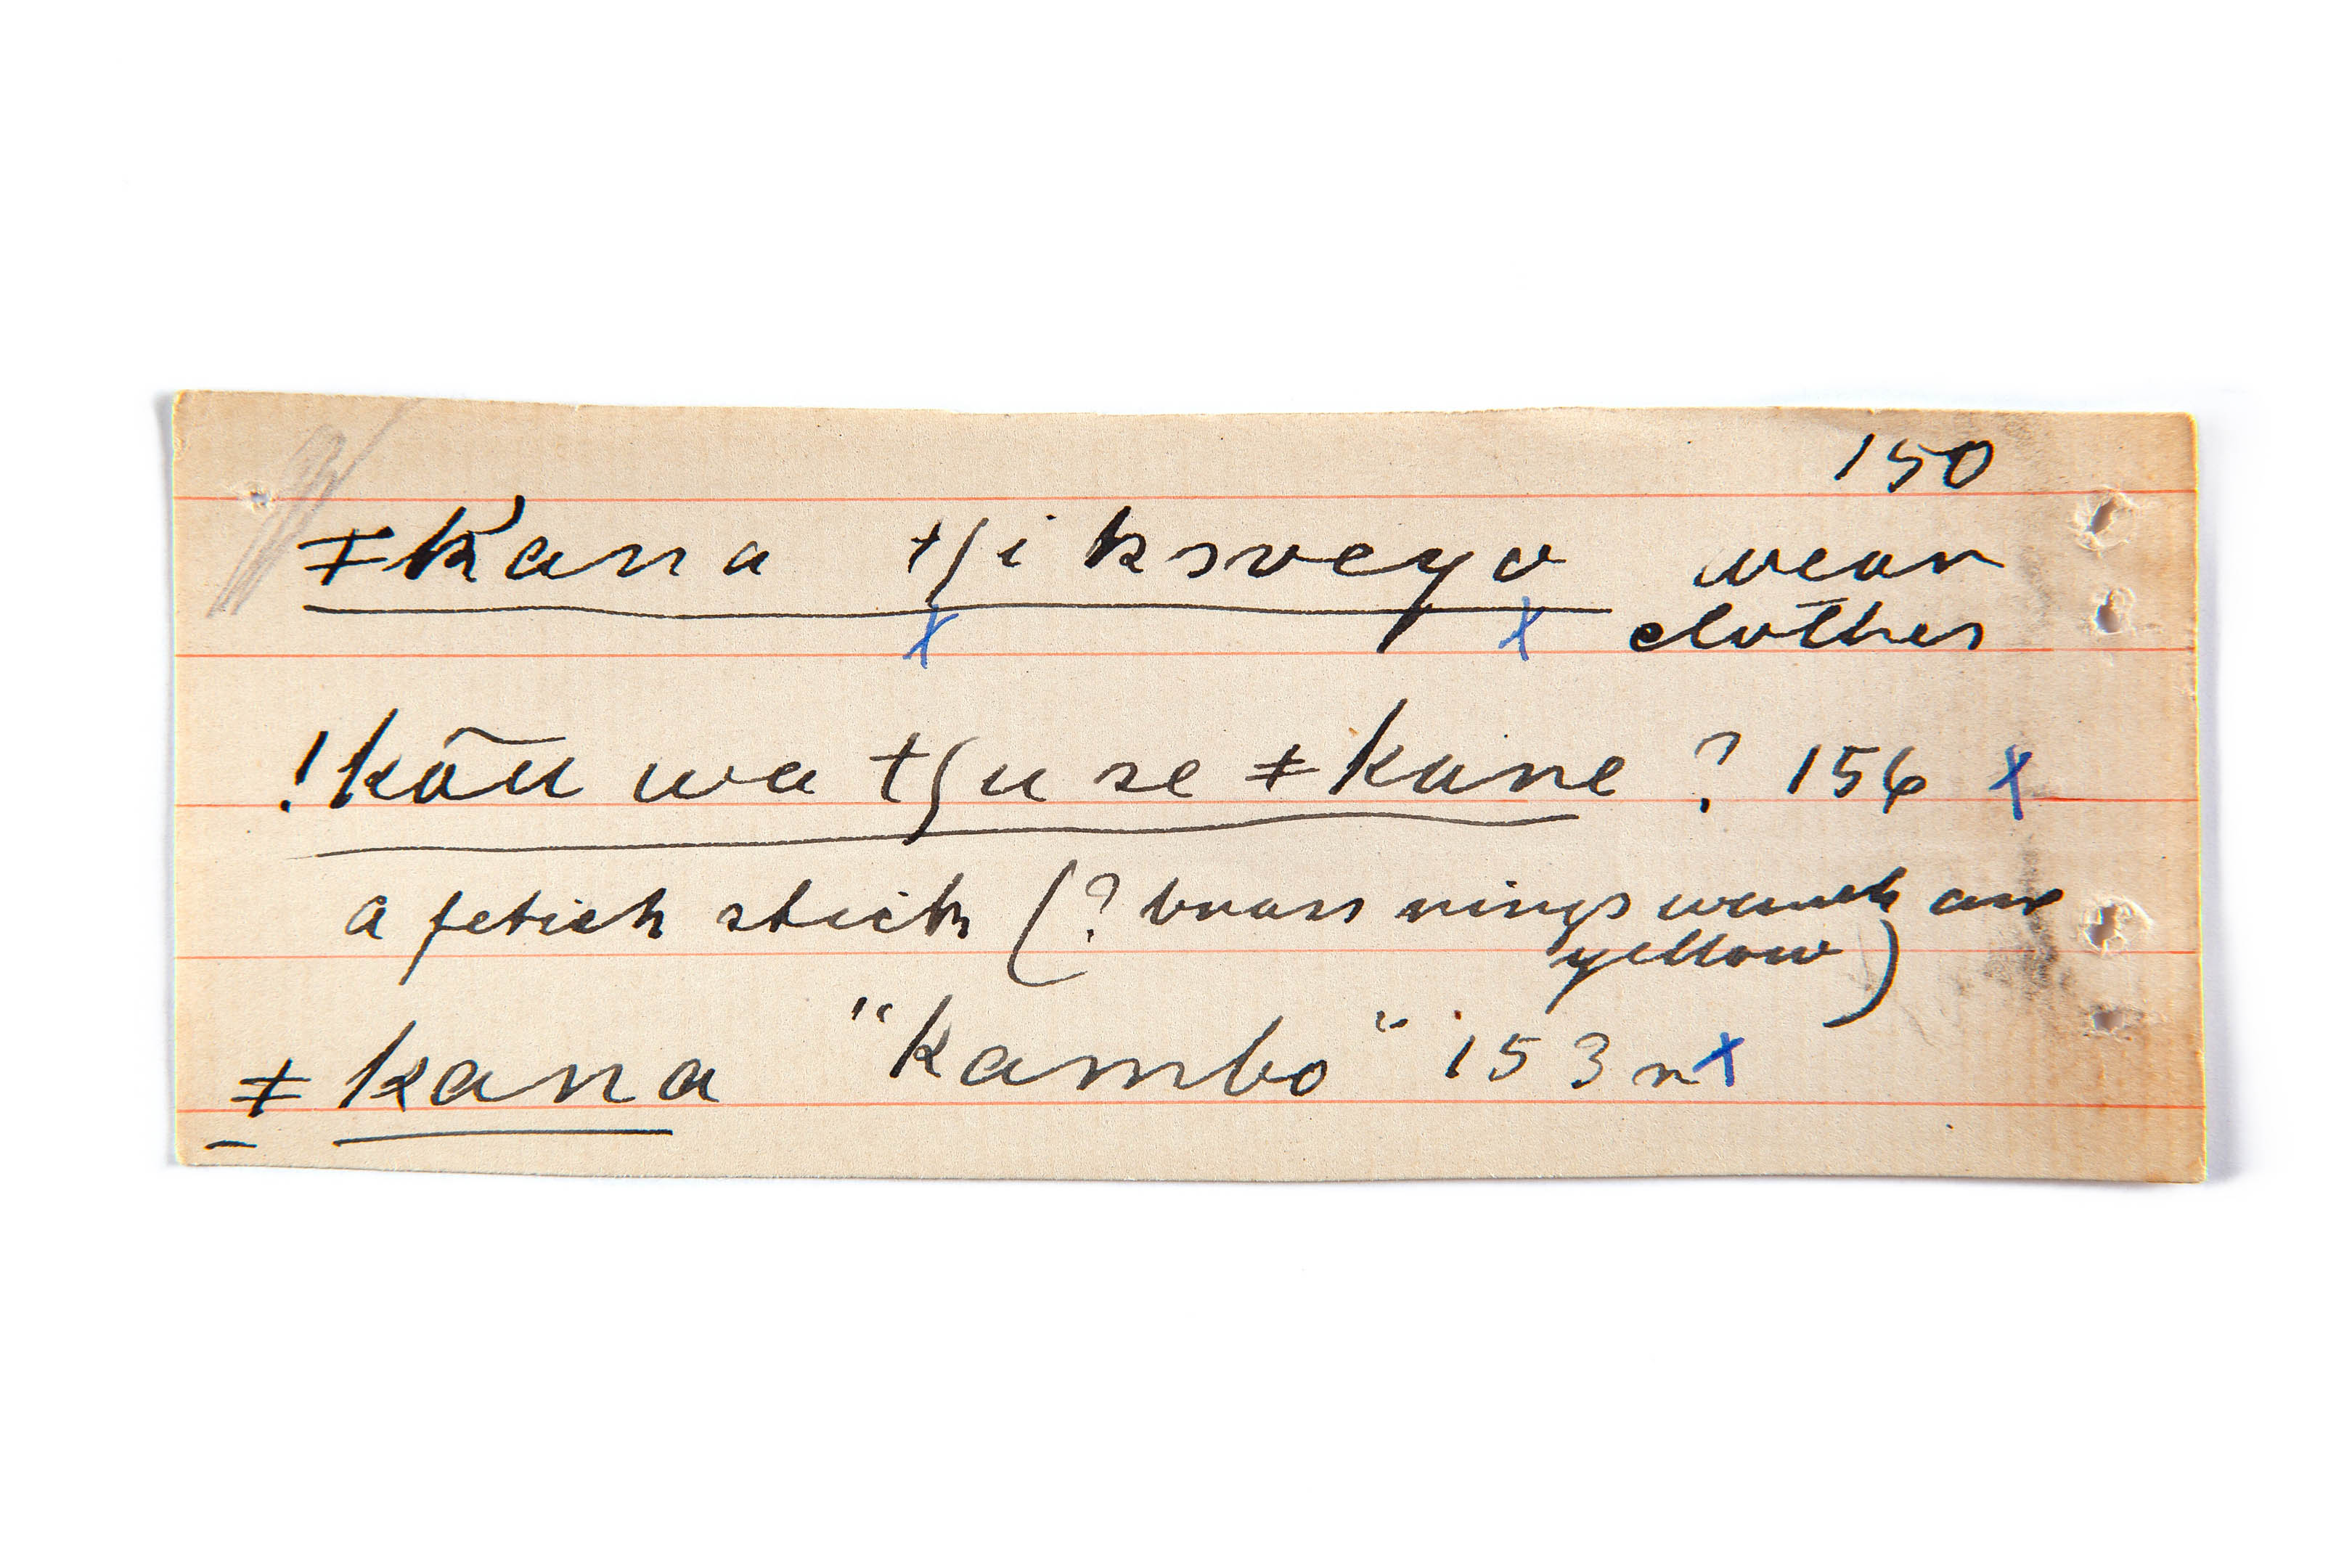 150
ǂkana tʃi ksveya wear
clothes
!kãũ wa tʃu se ǂkane ? 156 x
a fetich stick (? brass rings are
yellow)
ǂkana "kambo" 153 n x